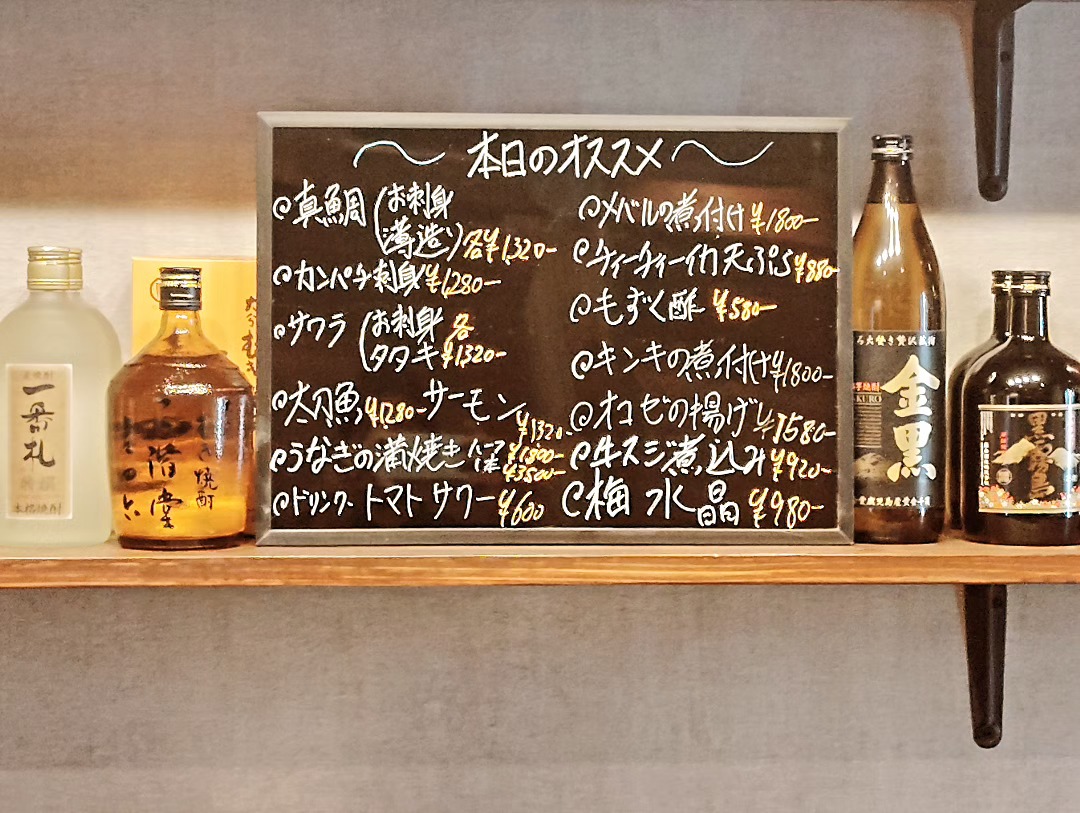 本日のオススメ
真鯛(お刺身
薄造り)各¥1,320-
カンパチ刺身¥1,280-
サワラ(お刺身 各
タタキ ¥1320-
太刀魚¥1,280- サーモン¥1320-
うなぎの蒲焼き ¥1800-
¥3500-
ドリンク トマトサワー¥600
メバルの煮付け¥1800-
ティーティーイカ天ぷら¥880-
もずく酢 ¥580-
キンキの煮付け¥1800-
オコゼの揚げ ¥1580-
牛スジ煮込み¥920-
梅水晶 ¥980-
一番札
本格焼酎
むぎ焼酎
二階堂
金黒
KURO
黒霧島